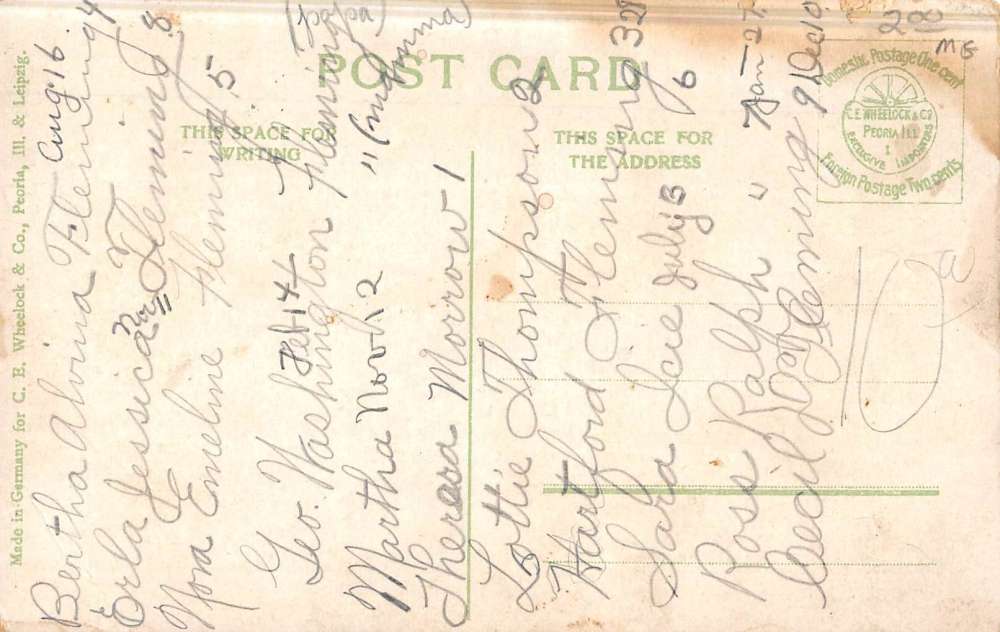 POST CARD
THIS SPACE FOR
WRITING
THIS SPACE FOR
THE ADDRESS
Domestic Postage One cent
C.E. WHEELOCK & CO
PEORIA ILL
EXCLUSIVE IMPORTERS
Foreign Postage Two cents
Made in Germany for C. E. Wheelock & Co., Peoria, Ill. & Leipzig.
2 00
MG
Bertha Alvina Flemming 4
Aug 16
Erla Jessica Flemming 8
Nov
Nora Emeline Flemming 5
Geo. Washington Flemming (papa)
Feb 14
Martha Nov 2 " (mamma)
Theresa Morrow 1
Lottie Thompson 2
Hartford Flemming 32
Sara Icie July 3 6
Ross Ralph " Jan 27
Cecil Flemming 9 Dec 10